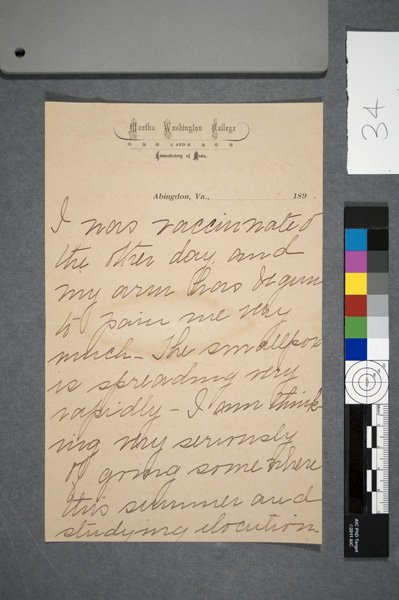 Martha Washington College
AND
Conservatory of Music.
Abingdon, Va., 189
I was vaccinnated
the other day and
my arm has begun
to pain me very
much - The smallpox
is spreading very
rapidly - I am think
ing very seriously
of going some where
this summer and
studying elocution
34
AIC PhD Target